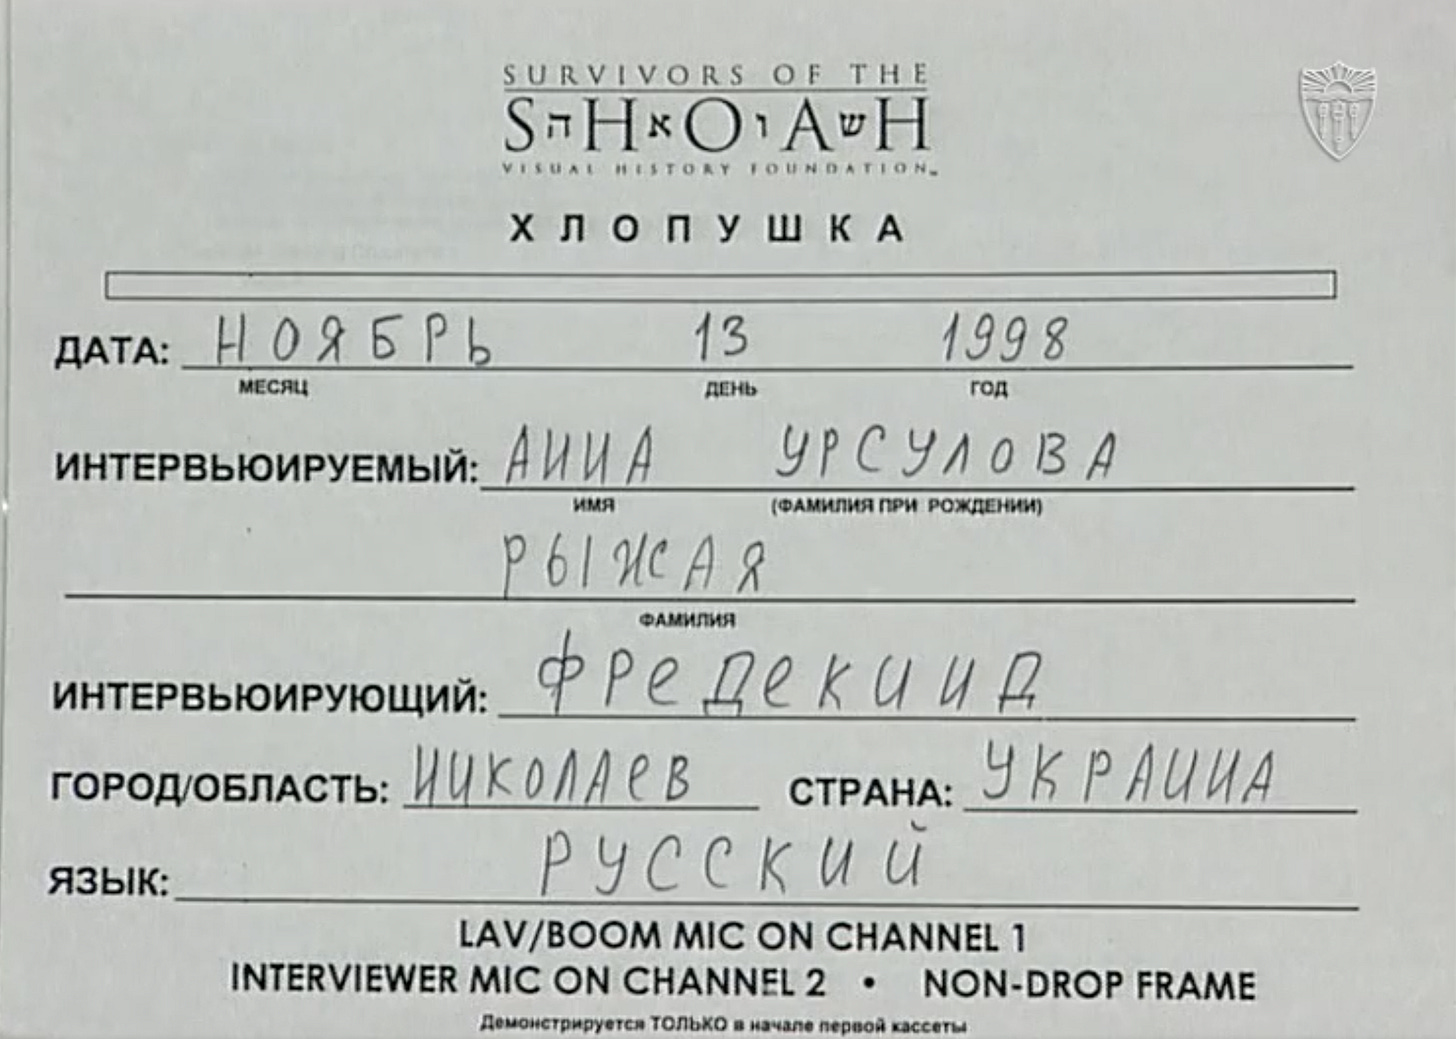 SURVIVORS OF THE
SהHאOוAשH
VISUAL HISTORY FOUNDATION™
ХЛОПУШКА
ДАТА: НОЯБРЬ 13 1998
МЕСЯЦ ДЕНЬ ГОД
ИНТЕРВЬЮИРУЕМЫЙ: АННА УРСУЛОВА
ИМЯ (ФАМИЛИЯ ПРИ РОЖДЕНИИ)
РЫЖАЯ
ФАМИЛИЯ
ИНТЕРВЬЮИРУЮЩИЙ: ФРЕДЕКИНД
ГОРОД/ОБЛАСТЬ: НИКОЛАЕВ СТРАНА: УКРАИНА
ЯЗЫК: РУССКИЙ
LAV/BOOM MIC ON CHANNEL 1
INTERVIEWER MIC ON CHANNEL 2 • NON-DROP FRAME
Демонстрируется ТОЛЬКО в начале первой кассеты